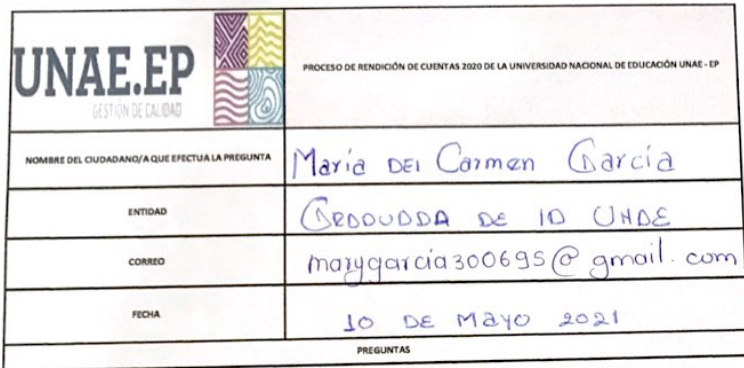 UNAE.EP
GESTIÓN DE CALIDAD
PROCESO DE RENDICIÓN DE CUENTAS 2020 DE LA UNIVERSIDAD NACIONAL DE EDUCACIÓN UNAE - EP
NOMBRE DEL CIUDADANO/A QUE EFECTUA LA PREGUNTA
María DEl Carmen García
ENTIDAD
GRADUADA DE lA UNAE
CORREO
marygarcia300695@gmail.com
FECHA
10 DE Mayo 2021
PREGUNTAS